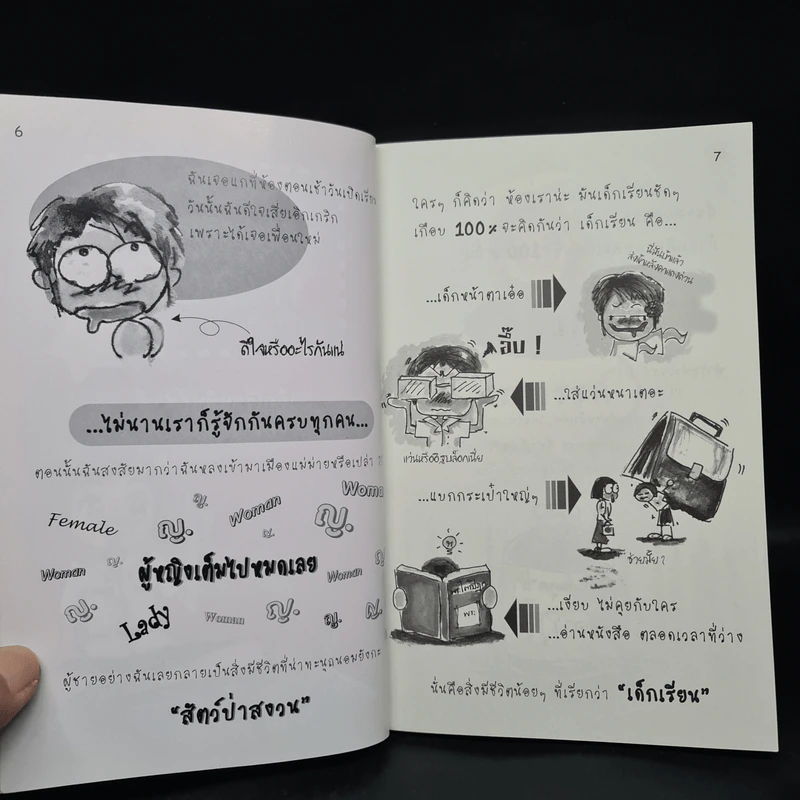 6
ฉันเจอแกที่ห้องตอนเช้าวันเปิดเรียน
วันนั้นฉันดีใจเสียเอิกเกริก
เพราะได้เจอเพื่อนใหม่
ดีใจหรืออะไรกันแน่
...ไม่นานเราก็รู้จักกันครบทุกคน...
ตอนนั้นฉันสงสัยมากว่าฉันหลงเข้ามาเมืองแม่ม่ายหรือเปล่า
Female ญ. ญ. Woman ญ. Woman
Woman ญ. ญ. Woman ญ.
ผู้หญิงเต็มไปหมดเลย
ญ. Lady Woman ญ. ญ. ญ.
ผู้ชายอย่างฉันเลยกลายเป็นสิ่งมีชีวิตที่น่าทะนุถนอมยังกะ
“สัตว์ป่าสงวน”
7
ใครๆ ก็คิดว่า ห้องเราน่ะ มันเด็กเรียนชัดๆ
เกือบ 100% จะคิดกันว่า เด็กเรียน คือ...
...เด็กหน้าตาเอ๋อ
อึ๊บ !
...ใส่แว่นหนาเตอะ
แว่นหรืออิฐบล็อกเนี่ย
...แบกกระเป๋าใหญ่ๆ
ช่วยมั้ย ?
...เงียบ ไม่คุยกับใคร
...อ่านหนังสือ ตลอดเวลาที่ว่าง
นั่นคือสิ่งมีชีวิตน้อยๆ ที่เรียกว่า “เด็กเรียน”